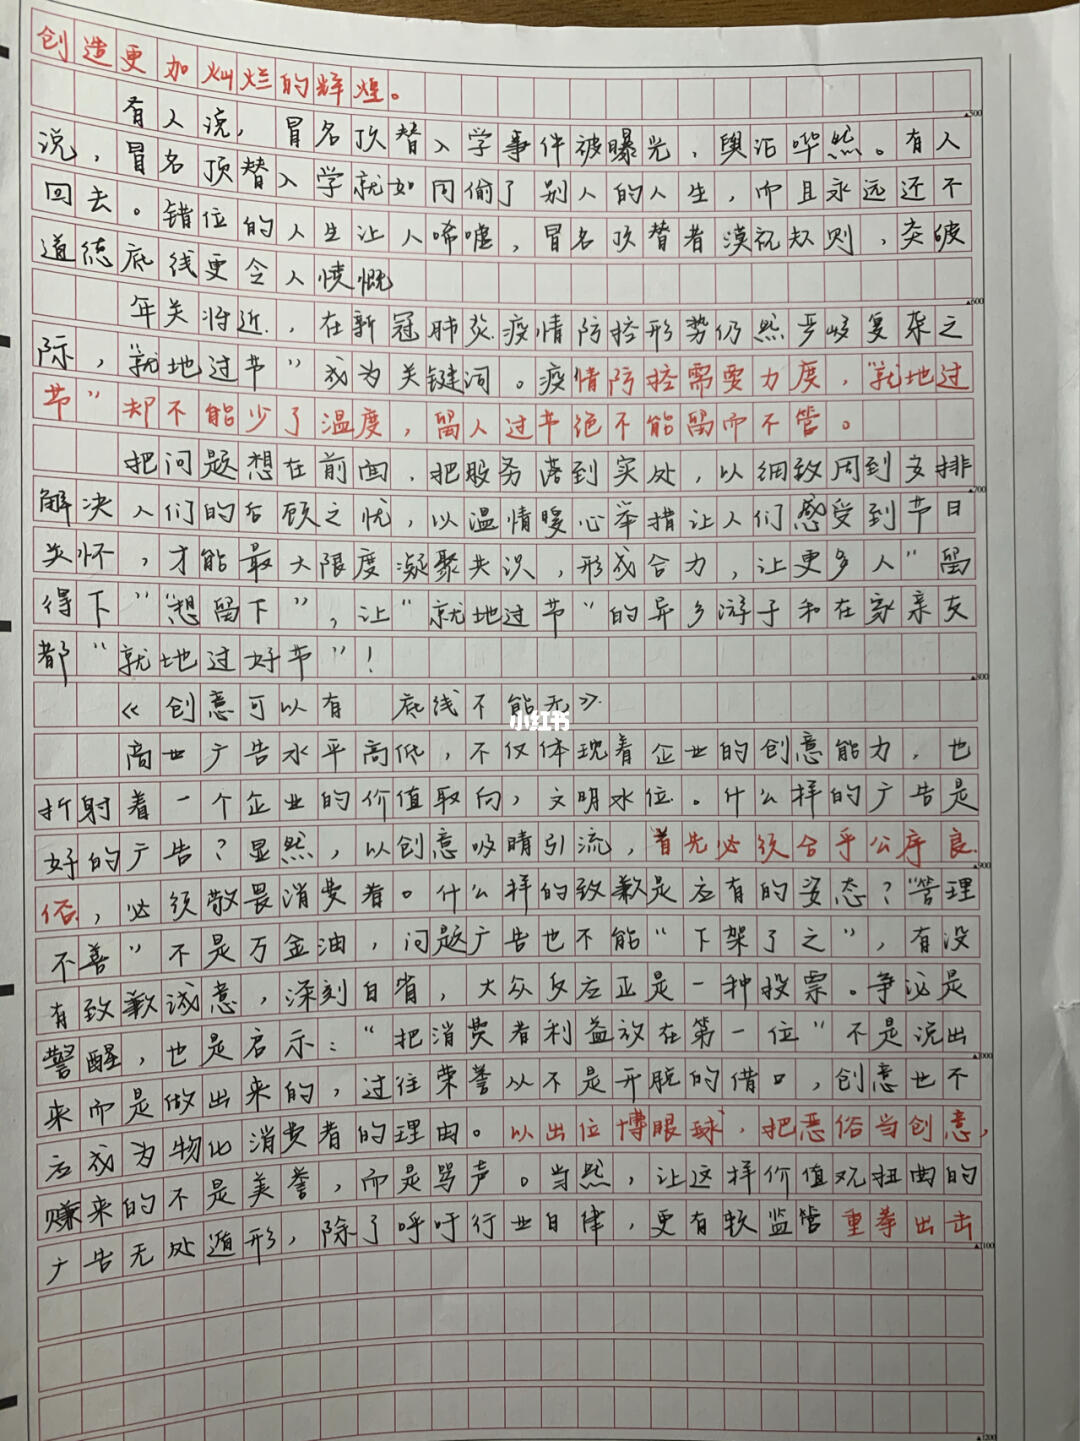 创造更加灿烂的辉煌。
有人说，冒名顶替入学事件被曝光，舆论哗然。有人
说，冒名顶替入学就如同偷了别人的人生，而且永远还不
回去。错位的人生让人唏嘘，冒名顶替者漠视规则，突破
道德底线更令人愤慨
年关将近，在新冠肺炎疫情防控形势仍然严峻复杂之
际，“就地过节”成为关键词。疫情防控需要力度，“就地过
节”却不能少了温度，留人过节绝不能留而不管。
把问题想在前面，把服务落到实处，以细致周到安排
解决人们的后顾之忧，以温情暖心举措让人们感受到节日
关怀，才能最大限度凝聚共识，形成合力，让更多人“留
得下”“想留下”，让“就地过节”的异乡游子和在家亲友
都“就地过好节”！
《创意可以有 底线不能无》
商业广告水平高低，不仅体现着企业的创意能力，也
折射着一个企业的价值取向，文明水位。什么样的广告是
好的广告？显然，以创意吸睛引流，首先必须合乎公序良
俗，必须敬畏消费者。什么样的致歉是应有的姿态？“管理
不善”不是万金油，问题广告也不能“下架了之”，有没
有致歉诚意，深刻自省，大众反应正是一种投票。争议是
警醒，也是启示：“把消费者利益放在第一位”不是说出
来而是做出来的，过往荣誉从不是开脱的借口，创意也不
应成为物化消费者的理由。以出位博眼球，把恶俗当创意，
赚来的不是美誉，而是骂声。当然，让这样价值观扭曲的
广告无处遁形，除了呼吁行业自律，更有赖监管重拳出击
500
600
700
800
900
1000
1100
1200
小红书